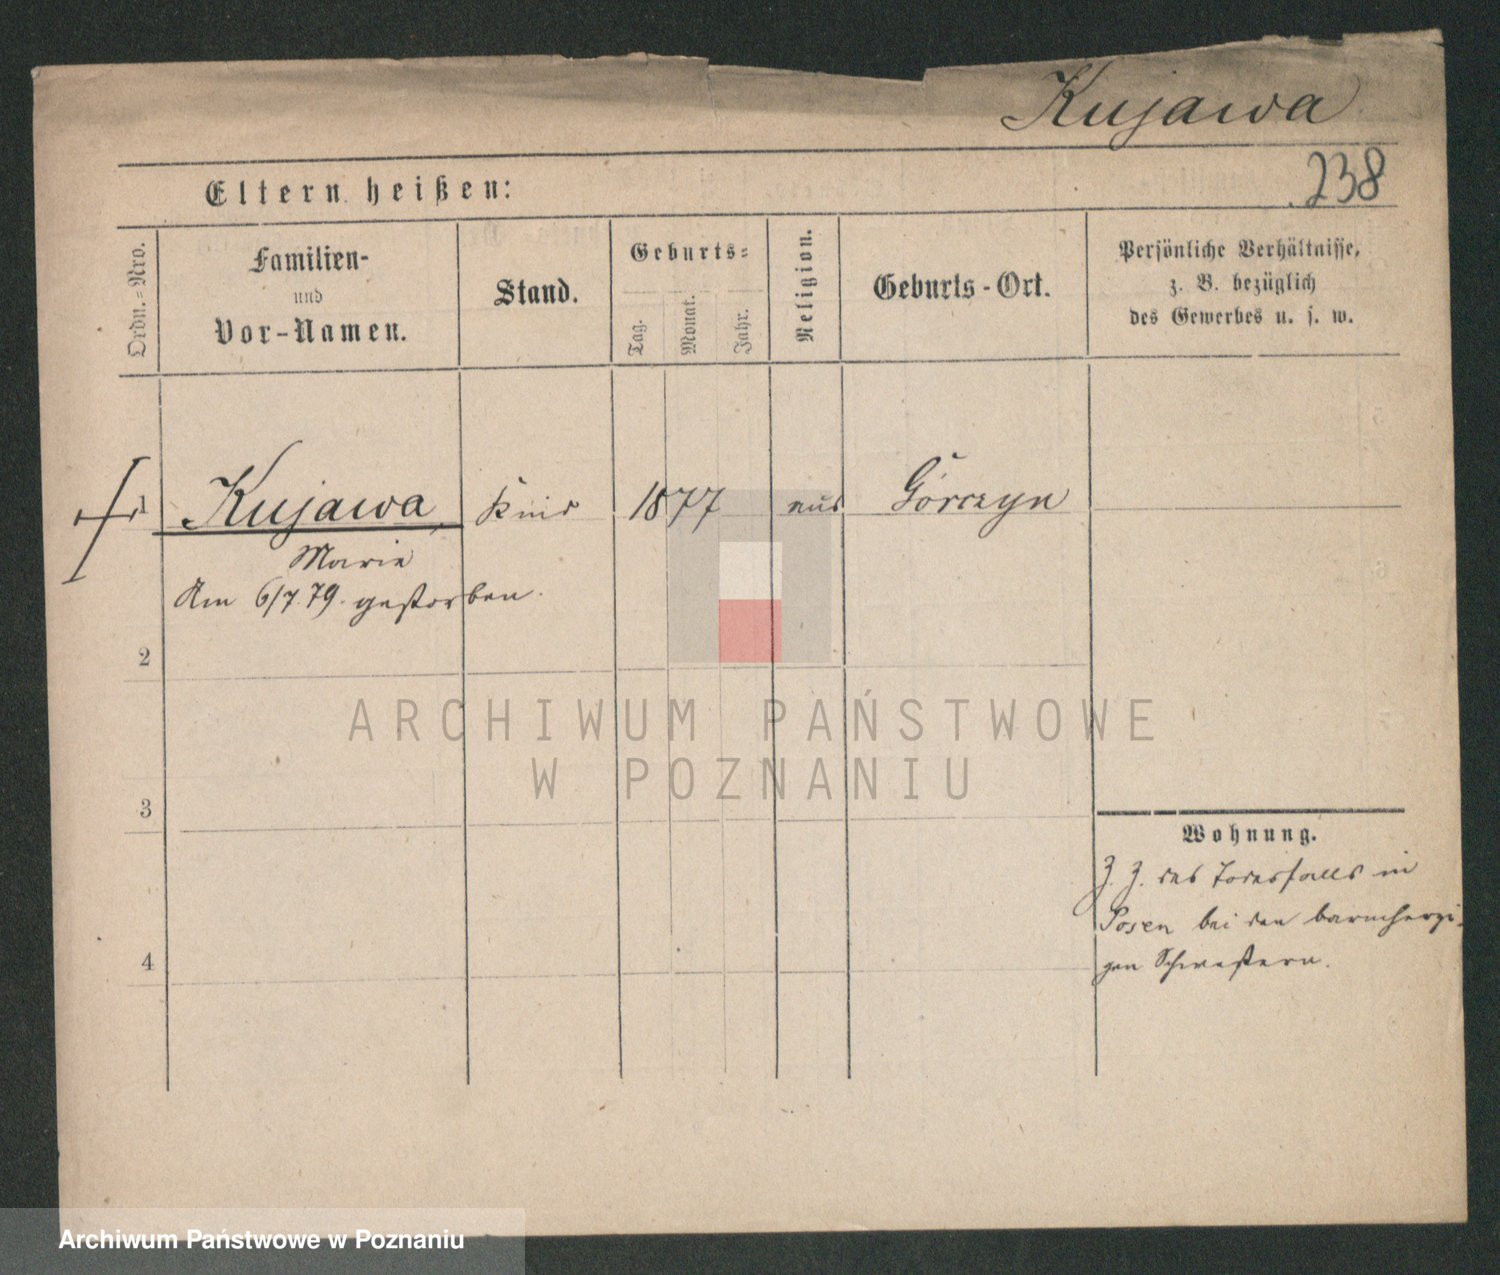 Kujawa
238
Eltern heißen:
Ordn.=Nro.
Familien-
und
Vor-Namen.
Stand.
Geburts=
Tag.
Monat.
Jahr.
Religion.
Geburts-Ort.
Persönliche Verhältnisse,
z. B. bezüglich
des Gewerbes u. s. w.
1 Kujawa, Kind 1877 aus Górczyn
Marie
Am 6/7 79. gestorben.
2
ARCHIWUM PAŃSTWOWE
W POZNANIU
3
Wohnung.
Z. Z. des Todesfalls in
Posen bei den barmherzi-
4
gen Schwestern.
Archiwum Państwowe w Poznaniu